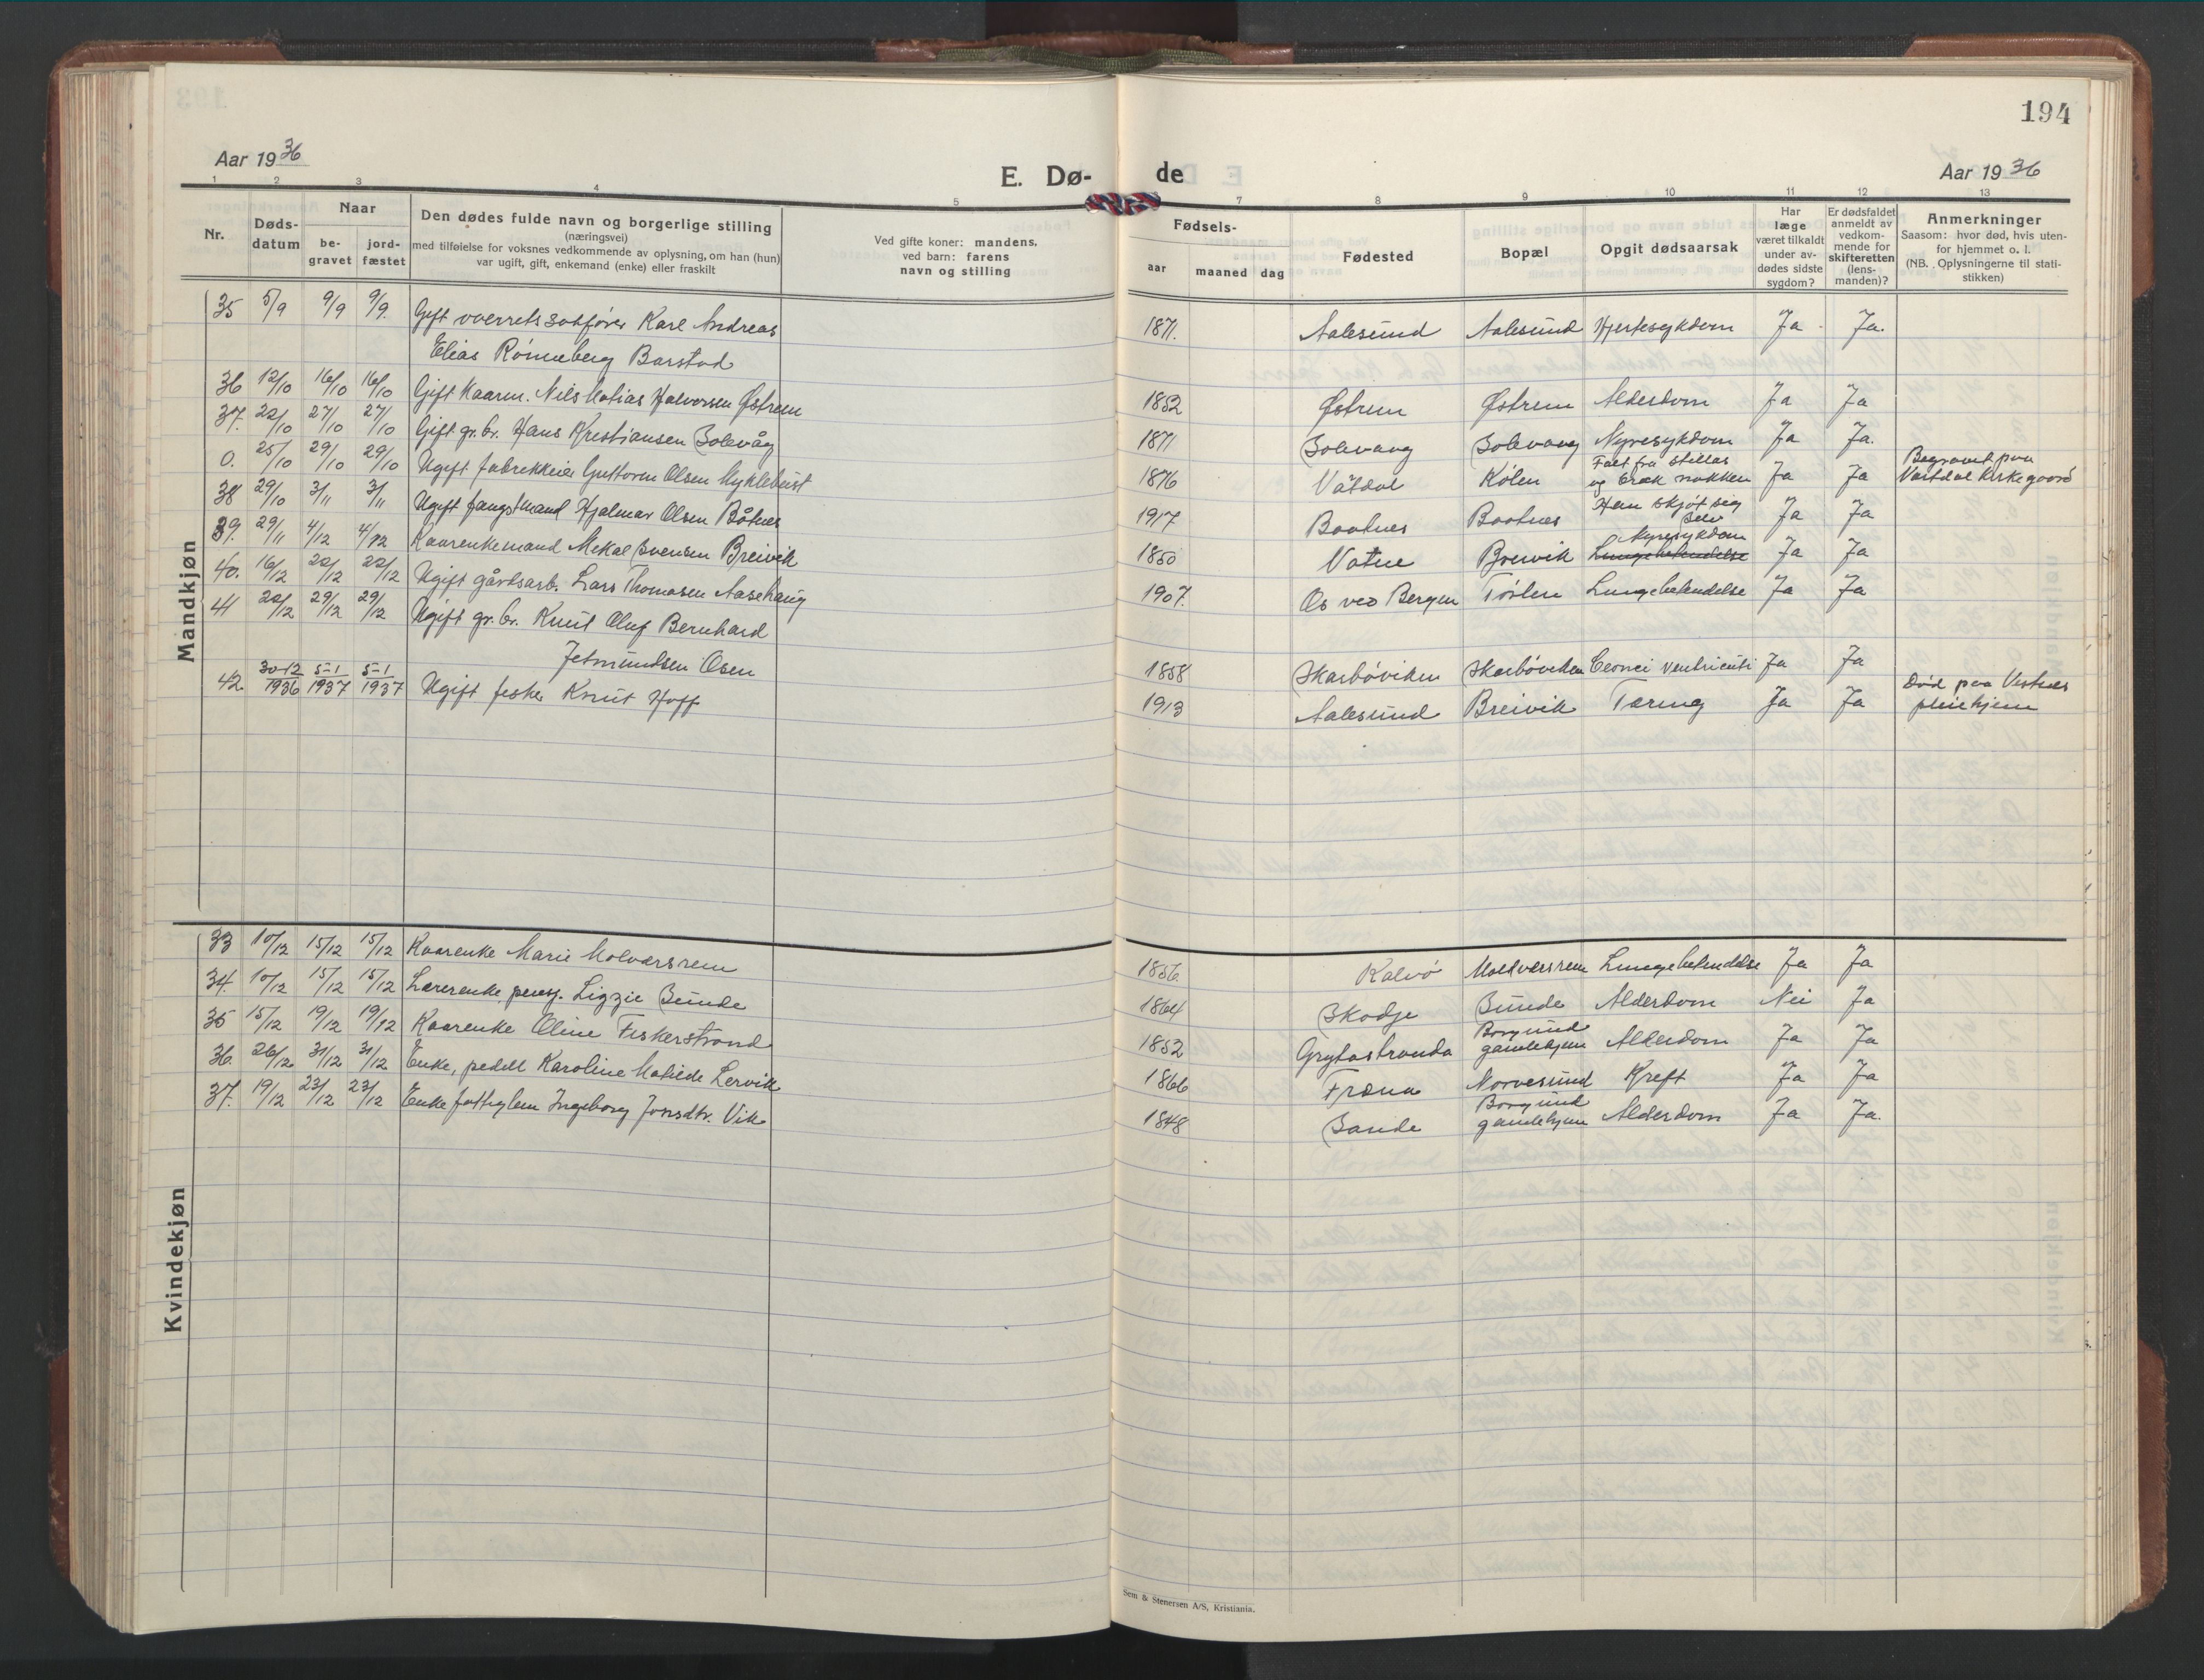 194
Aar 1936
E. Dø-
de
Aar 1936
1 2 3 4 5 6 7 8 9 10 11 12 13
Nr.
Døds-
datum
Naar
be-
gravet
jord-
fæstet
Den dødes fulde navn og borgerlige stilling
(næringsvei)
med tilføielse for voksnes vedkommende av oplysning, om han (hun)
var ugift, gift, enkemand (enke) eller fraskilt
Ved gifte koner: mandens,
ved barn: farens
navn og stilling
Fødsels-
aar maaned dag
Fødested
Bopæl
Opgit dødsaarsak
Har
læge
været tilkaldt
under av-
dødes sidste
sygdom?
Er dødsfaldet
anmeldt av
vedkom-
mende for
skifteretten
(lens-
manden)?
Anmerkninger
Saasom: hvor død, hvis uten-
for hjemmet o. l.
(NB. Oplysningerne til stati-
stikken)
Mandkjøn
35 5/9 9/9 9/9. Gift overretssakfører Karl Andreas
Elias Rønneberg Barstad
1871. Aalesund Aalesund Hjertesykdom Ja Ja.
36 12/10 16/10 16/10 Gift kaarm. Nils Matias Halvorsen Østrem
1852 Østrem Østrem Alderdom Ja Ja
37. 22/10 27/10 27/10 Gift gr.br. Hans Kristiansen Solevåg
1871 Solevaag Solevaag Nyresykdom Ja Ja.
0. 25/10 29/10 29/10 Ugift fabrikkeier Guttorm Olsen Myklebust
1876 Våtdal Kolen Falt fra stillas
og bræk nakken Ja Ja Begravet paa
Vartdal Kirkegaard
38 29/10 3/11 3/11 Ugift fangstmand Hjalmar Olsen Båtnes
1917 Baatnes Baatnes Han skjøt sig
selv Ja Ja
39. 29/11 4/12 4/12 Kaarenkemand Mekal Svensen Breivik
1850 Vatne Breivik Nyresykdom
Lungebetendelse Ja Ja
40. 16/12 22/12 22/12 Ugift gårdsarb. Lars Thomasen Aasehaug
1907. Os ved Bergen Tørlen Lungebetendelse Ja Ja
41 22/12 29/12 29/12 Ugift gr.br. Knut Oluf Bernhard
Jetmundsen Osen
1858 Skarbøviken Skarbøviken Ja Ja
42. 30-12/1936 5-1/1937 5-1/1937 Ugift fisker Knut Hoff
1913 Aalesund Breivik Tæring Ja Ja Død paa Vestnes
pleiehjem
Kvindekjøn
33 10/12 15/12 15/12 Kaarenke Marie Molværsrem
1856. Kalvø Molværsrem Lungebetendelse Ja Ja
34. 10/12 15/12 15/12 Lærerenke, pensj. Lizzie Sunde
1864 Skodje Sunde Alderdom Nei Ja
35 15/12 19/12 19/12 Kaarenke Oline Fiskerstrand
1852 Grytastranda Borgund
gamlehjem Alderdom Ja Ja
36. 26/12 31/12 31/12 Enke, pedell Karoline Matilde Lervik
1866 Fræna Nørvesund Kreft Ja Ja
37. 19/12 23/12 23/12 Enke fattiglem Ingeborg Jonsdtr. Vik
1848 Sande Borgund
gamlehjem Alderdom Ja Ja.
Sem & Stenersen A/S, Kristiania.